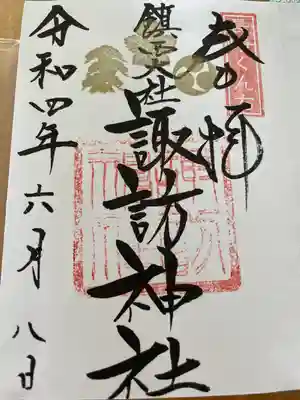 奉拝
鎮西大社
諏訪神社
令和四年六月八日